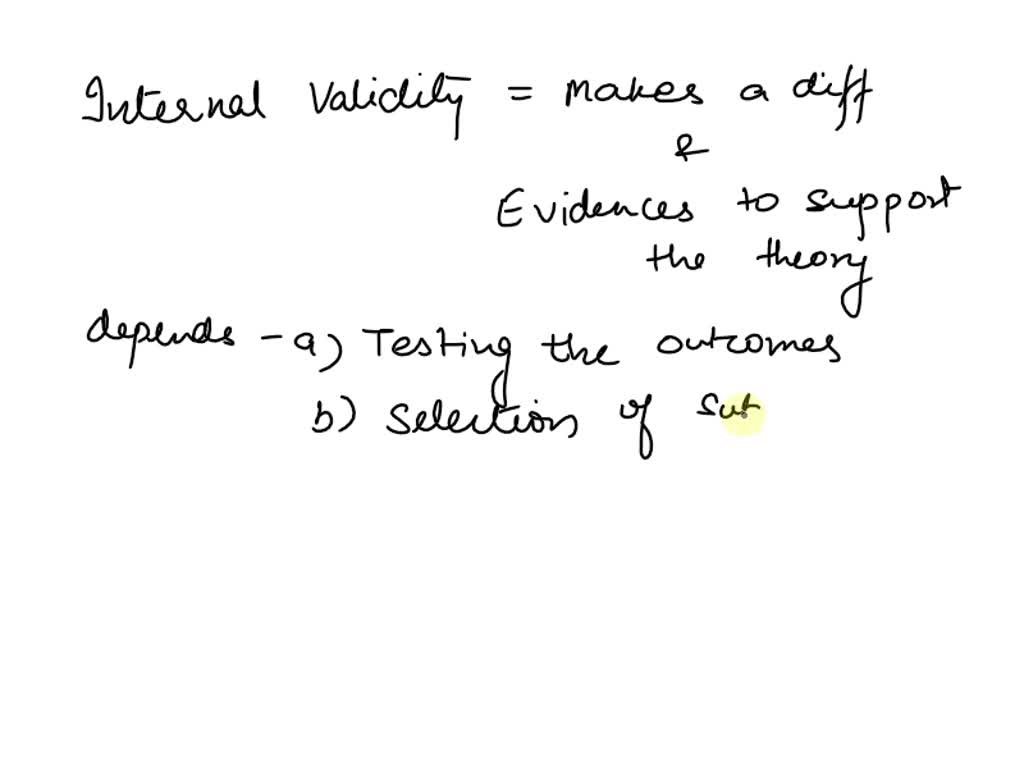 Internal Validity = makes a diff
&
Evidences to support
the theory
depends - a) Testing the outcomes
b) Selection of